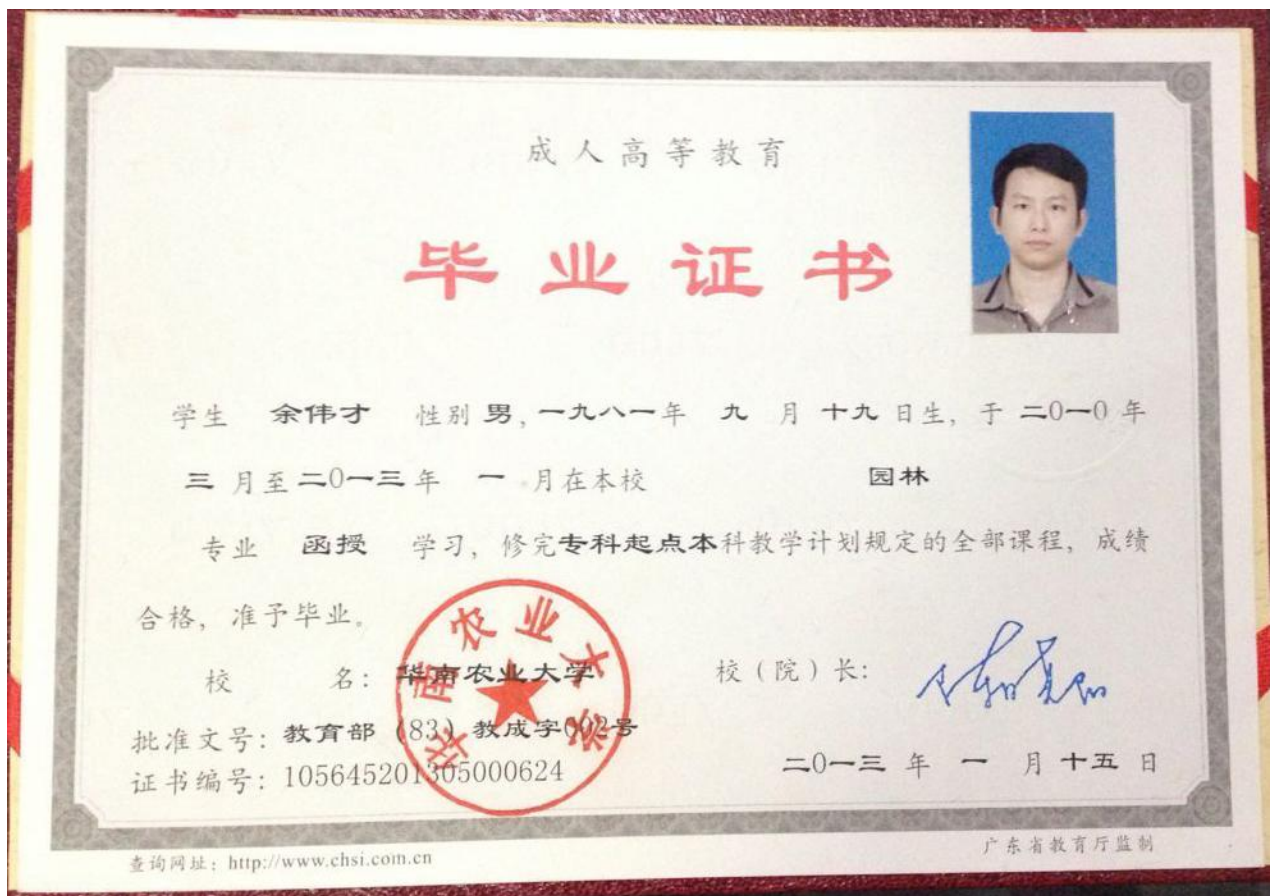 成人高等教育
毕业证书
学生 余伟才 性别 男, 一九八一年 九 月 十九 日生, 于 二0一0 年
三 月至 二0一三 年 一 月在本校 园林
专业 函授 学习, 修完专科起点本科教学计划规定的全部课程, 成绩
合格, 准予毕业。
校 名: 华南农业大学 校(院)长:
批准文号: 教育部 (83) 教成字002号
二0一三 年 一 月 十五 日
证书编号: 105645201305000624
华南农业大学
查询网址: http://www.chsi.com.cn
广东省教育厅监制